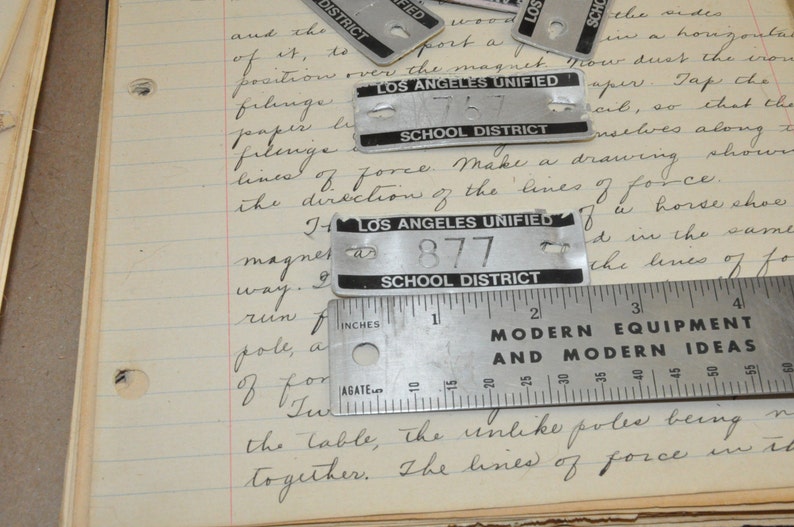 and the the sides
of it, to port a in a horizontal
position over the magnet. Now dust the iron
filings paper. Tap the
paper cil, so that the
filings mselves along t
lines of force. Make a drawing showin
the direction of the lines of force.
of a horse shoe
magnet in the same
way. the lines of fo
run f
pole, a
of for
the table, the unlike poles being
together. The lines of force in th
UNIFIED
DISTRICT
LOS AN
SCHO
LOS ANGELES UNIFIED
767
SCHOOL DISTRICT
LOS ANGELES UNIFIED
877
SCHOOL DISTRICT
INCHES 1 2 3 4
MODERN EQUIPMENT
AND MODERN IDEAS
AGATE 5 10 15 20 25 30 35 40 45 50 55 60